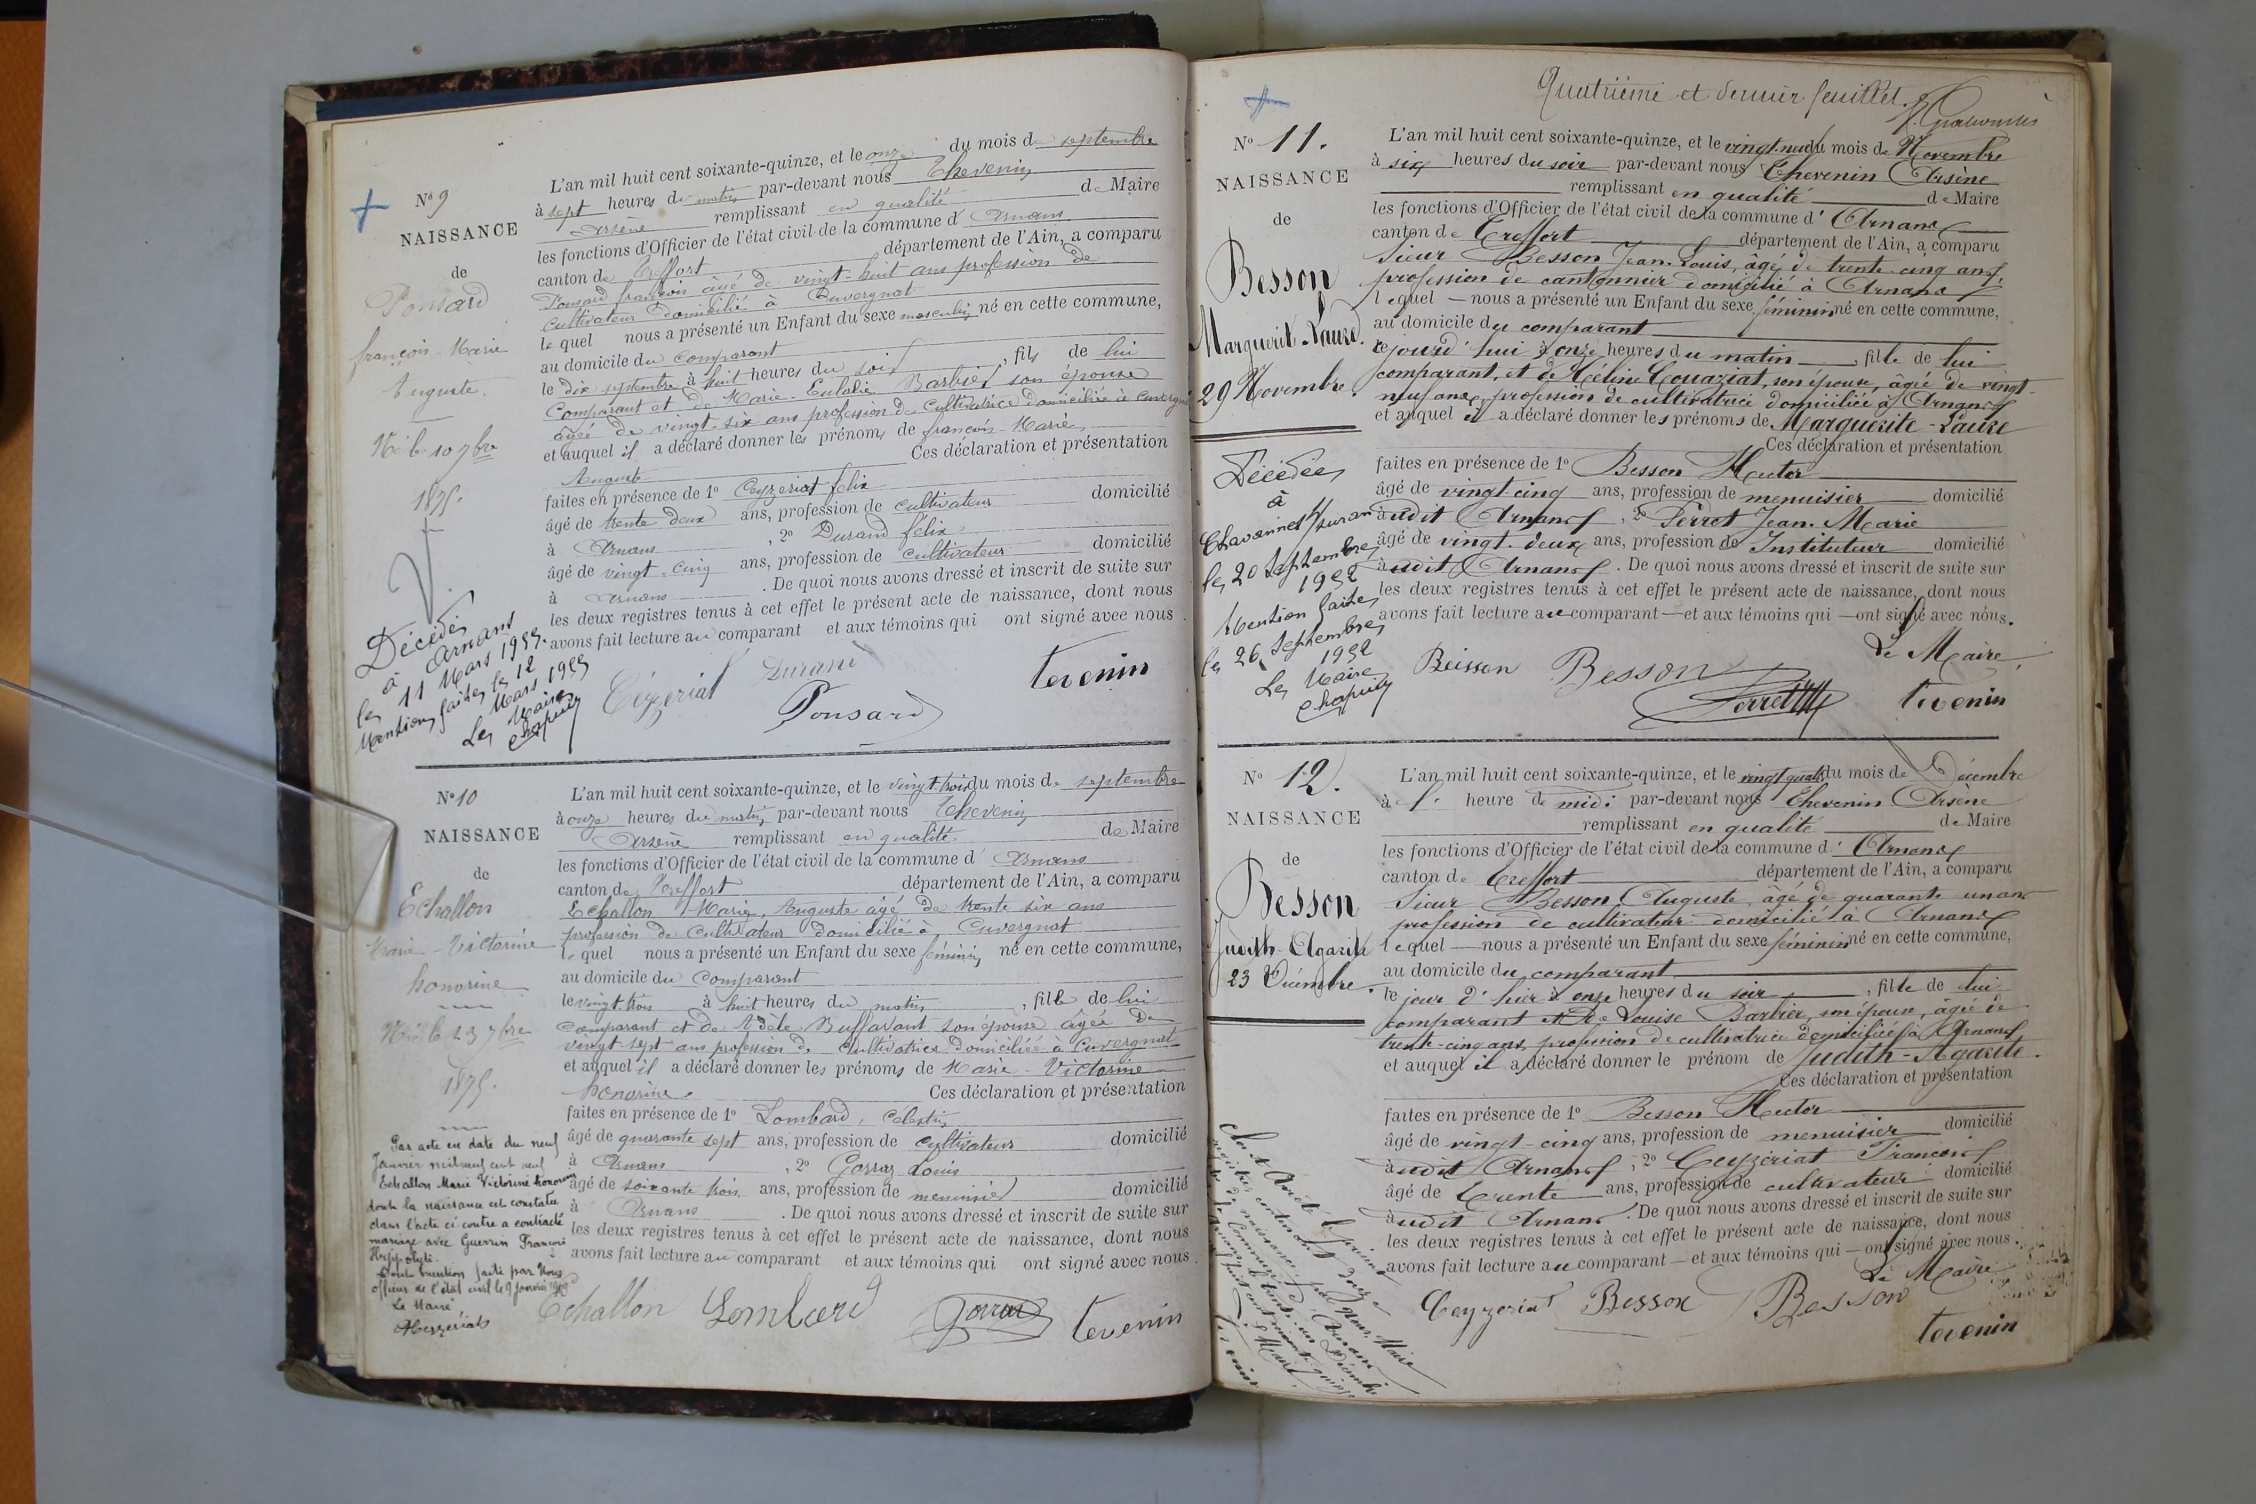 N° 9
NAISSANCE
de
Ponsard
françois-Marie
Auguste.
Né le 10 7bre
1875.
Décédé
à Arnans
le 11 Mars 1955.
Mention faite le 12
Mars 1955
Le Maire
Chapuy
L'an mil huit cent soixante-quinze, et le onze du mois de septembre
à sept heures du matin par-devant nous Thevenin
Arsène remplissant en qualité de Maire
les fonctions d'Officier de l'état civil de la commune d'Arnans
canton de Treffort département de l'Ain, a comparu
Ponsard françois âgé de vingt-huit ans profession de
cultivateur domicilié à Cuvergnat
lequel nous a présenté un Enfant du sexe masculin né en cette commune,
au domicile du comparant
le dix septembre à huit heures du soir, fils de lui
Comparant et de Marie-Eulalie Barbier son épouse
âgée de vingt-six ans profession de Cultivatrice domiciliée à Cuvergnat
et auquel il a déclaré donner les prénoms de françois-Marie
Auguste Ces déclaration et présentation
faites en présence de 1° Ceyzeriat felix
âgé de trente deux ans, profession de cultivateur domicilié
à Arnans, 2° Durand félix
âgé de vingt-cinq ans, profession de cultivateur domicilié
à Arnans. De quoi nous avons dressé et inscrit de suite sur
les deux registres tenus à cet effet le présent acte de naissance, dont nous
avons fait lecture au comparant et aux témoins qui ont signé avec nous.
Céyzeriat Durand Tevenin
Ponsard
N° 10
NAISSANCE
de
Echallon
Marie-Victorine
honorine
Née le 23 7bre
1875.
Par acte en date du neuf
Janvier mil neuf cent neuf
Echallon Marie Victorine honorine
dont la naissance est constatée
dans l'acte ci contre a contracté
mariage avec Guerrin François
Hyppolyte.
Dont mention faite par Nous
officier de l'état civil le 9 Janvier
Le Maire
Ceyzeriat
L'an mil huit cent soixante-quinze, et le vingt-trois du mois de septembre
à onze heures du matin par-devant nous Thevenin
Arsène remplissant en qualité de Maire
les fonctions d'Officier de l'état civil de la commune d'Arnans
canton de Treffort département de l'Ain, a comparu
Echallon Marie, Auguste âgé de trente six ans
profession de Cultivateur domicilié à Cuvergnat
lequel nous a présenté un Enfant du sexe féminin né en cette commune,
au domicile du comparant
le vingt-trois à huit heures du matin, fille de lui
comparant et de Adèle Buffavant son épouse âgée de
vingt-sept ans profession de Cultivatrice domiciliée à Cuvergnat
et auquel il a déclaré donner les prénoms de Marie-Victorine
honorine Ces déclaration et présentation
faites en présence de 1° Lombard, Célestin
âgé de quarante sept ans, profession de cultivateur domicilié
à Arnans, 2° Gorraz Louis
âgé de soixante trois ans, profession de menuisier domicilié
à Arnans. De quoi nous avons dressé et inscrit de suite sur
les deux registres tenus à cet effet le présent acte de naissance, dont nous
avons fait lecture au comparant et aux témoins qui ont signé avec nous.
Echallon Lombard Gorraz Tevenin
Quatrième et dernier feuillet.
N° 11.
NAISSANCE
de
Besson
Marguerit-Laure.
29 Novembre.
Décédée
à
Chavannes s/ suran
le 20 Septembre
1952
Mention faite
le 26 Septembre
1952
Le Maire
Chapuy
L'an mil huit cent soixante-quinze, et le vingt-neuf du mois de Novembre
à six heures du soir par-devant nous Thevenin Arsène
remplissant en qualité de Maire
les fonctions d'Officier de l'état civil de la commune d'Arnans
canton de Treffort département de l'Ain, a comparu
Sieur Besson Jean-Louis, âgé de trente-cinq ans,
profession de cantonnier domicilié à Arnans
lequel nous a présenté un Enfant du sexe féminin né en cette commune,
au domicile du comparant
ce jourd'hui à onze heures du matin, fille de lui
comparant, et de Méline Couaziat, son épouse, âgée de vingt-
neuf ans, profession de cultivatrice domiciliée à Arnans
et auquel il a déclaré donner les prénoms de Marguerite-Laure
Ces déclaration et présentation
faites en présence de 1° Besson Hector
âgé de vingt-cinq ans, profession de menuisier domicilié
audit Arnans, 2° Perret Jean-Marie
âgé de vingt-deux ans, profession de Instituteur domicilié
audit Arnans. De quoi nous avons dressé et inscrit de suite sur
les deux registres tenus à cet effet le présent acte de naissance, dont nous
avons fait lecture au comparant et aux témoins qui ont signé avec nous.
Le Maire,
Beisson Besson Perret Tevenin
N° 12.
NAISSANCE
de
Besson
Judith-Agarite
23 Décembre.
Clos et Arrêté le présent
registre contenant douze
actes de naissance, par Nous, Maire
de la Commune d'Arnans
Le Maire,
Tevenin
L'an mil huit cent soixante-quinze, et le vingt quatre du mois de Décembre
à 1. heure de midi par-devant nous Thevenin Arsène
remplissant en qualité de Maire
les fonctions d'Officier de l'état civil de la commune d'Arnans
canton de Treffort département de l'Ain, a comparu
Sieur Besson Auguste, âgé de quarante un ans
profession de cultivateur domicilié à Arnans
lequel nous a présenté un Enfant du sexe féminin né en cette commune,
au domicile du comparant
le jour d'hier à onze heures du soir, fille de lui
comparant et de Louise Barbier, son épouse, âgée de
trente-cinq ans, profession de cultivatrice domiciliée à Arnans
et auquel il a déclaré donner le prénom de Judith-Agarite.
Ces déclaration et présentation
faites en présence de 1° Besson Hector
âgé de vingt-cinq ans, profession de menuisier domicilié
audit Arnans, 2° Ceyzériat François
âgé de Trente ans, profession de cultivateur domicilié
audit Arnans. De quoi nous avons dressé et inscrit de suite sur
les deux registres tenus à cet effet le présent acte de naissance, dont nous
avons fait lecture au comparant et aux témoins qui ont signé avec nous.
Le Maire
Ceyzeriat Besson Besson
Tevenin